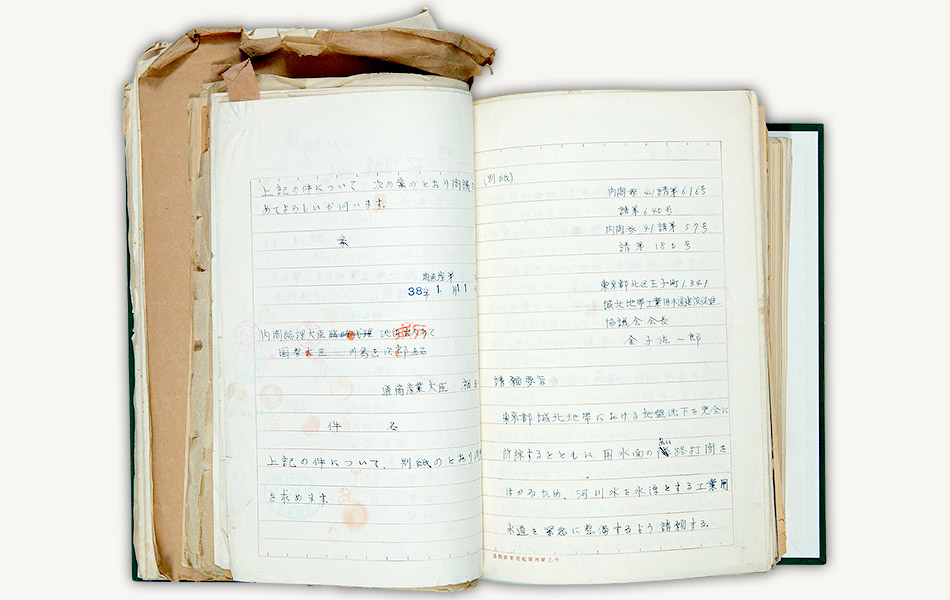 上記の件について、次の案のとおり閣議
あてよろしいか伺います。
案
38年1月11
内閣総理大臣臨時代理 池田勇人あて
通商産業大臣 福
件 名
上記の件について、別紙のとおり閣
を求めます。
(別紙)
内閣参41請第616号
請第640号
内閣参41請第57号
請第180号
東京都北区王子町1,341
城北地帯工業用水道建設促進
協議会会長
金子佐一郎
請願要旨
東京都城北地帯における地盤沈下を完全に
防除するとともに用水面のあい路打開を
はかるため、河川水を水源とする工業用
水道を緊急に整備するよう請願する。